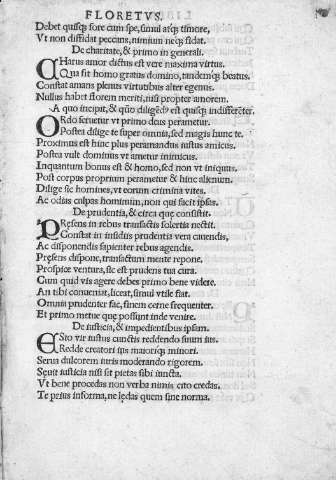 FLORETVS.
Debet quisq; fore cum spe, simul atq; timore,
Vt non diffidat peccans, nimium neq; fidat.
De charitate, & primo in generali.
CHarus amor dictus est vere maxima virtus.
Qua fit homo gratus domino, tandemq; beatus.
Constat amans plenus virtutibus alter egenus.
Nullus habet florem meriti, nisi propter amorem.
A quo incipit, & quo diligēdꝰ est quisq; indifferēter.
ORdo seruetur vt primo deus perametur.
Postea dilige te super omnia, sed magis hunc te.
Proximus est hinc plus peramandus iustus amicus.
Postea vult dominus vt ametur inimicus.
Inquantum bonus est & homo, sed non vt iniquus.
Post corpus proprium perametur & hinc alienum.
Dilige sic homines, vt eorum crimina vites.
Ac odias culpas hominum, non qui facit ipsas.
De prudentia, & circa quę consistit.
PRęsens in rebus transactis solertia nectit.
Constat in insidiis prudentia vera cauendis,
Ac disponendis sapienter rebus agendis.
Pręsens dispone, transactum mente repone,
Prospice ventura, sic est prudens tua cura.
Cum quid vis agere debes primo bene videre.
An tibi conueniat, liceat, simul vtile fiat.
Omnia prudenter fac, finem cerne frequenter.
Et primo metue quę possunt inde venire.
De iusticia, & impedientibus ipsam.
ESto vir iustus cunctis reddendo suum ius.
Redde creatori ius maioriq; minori.
Serua dulcorem iuris moderando rigorem.
Sęuit iusticia nisi sit pietas sibi iuncta.
Vt bene procedas non verba nimis cito credas.
Te prius informa, ne lędas quem sine norma.